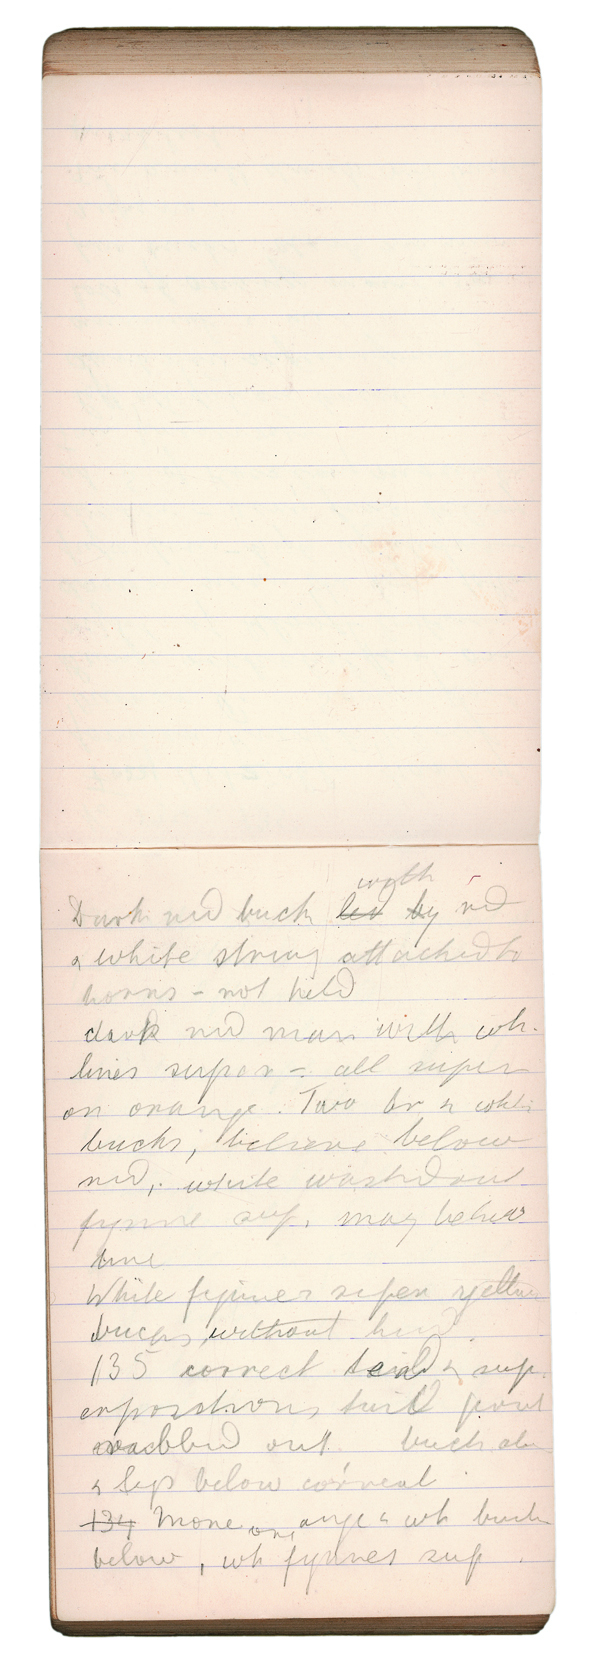 with
Dark red buck led by red
& white string attached to
horns - not held
dark red man with wh.
lines super - all super
on orange. Two or & white
bucks, believe below
red, white washed out
figure sup. may be
line
White figures super yellow
bucks, without head.
135 correct & sup.
expositions
out buck
& legs below correct.
134 More orange & wh buck
below, wh figures sup.